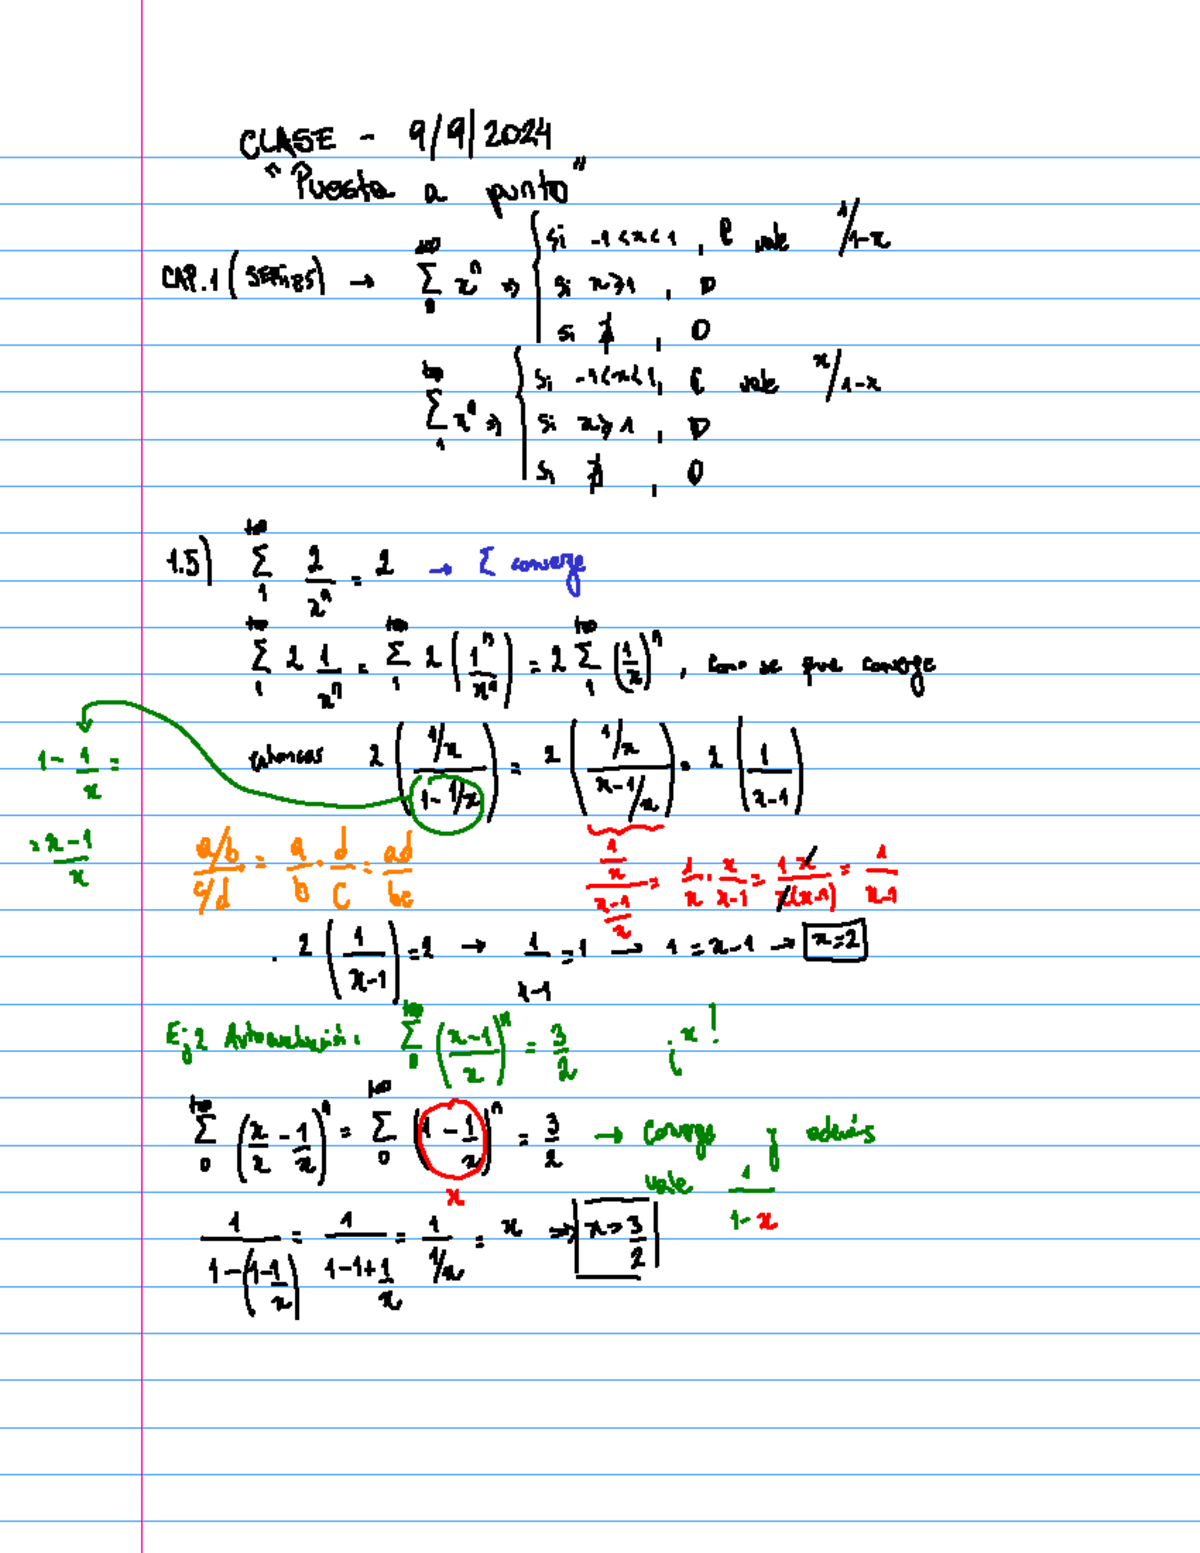 CLASE - 9/9/2024
"Puesta a punto"
CAP.1 (SERIES) → +∞ Σ 0 xⁿ ⇒ { si -1<x<1, C vale 1/1-x
si x≥1, D
si ∄, O
+∞ Σ 1 xⁿ ⇒ { si -1<x<1, C vale x/1-x
si x≥1, D
si ∄, O
1.5) +∞ Σ 1 2/xⁿ = 2 → Σ converge
+∞ Σ 1 2 1/xⁿ = +∞ Σ 1 2 (1ⁿ/xⁿ) = 2 +∞ Σ 1 (1/x)ⁿ, como se que converge
1 - 1/x =
entonces 2 ((1/x)/(1-1/x)) = 2 ((1/x)/(x-1/x)) = 2 (1/(x-1))
= x-1/x
(a/b)/(c/d) = a/b · d/c = ad/bc
(1/x)/((x-1)/x) = 1/x · x/(x-1) = 1x/x(x-1) = 1/(x-1)
. 2 (1/(x-1)) = 2 → 1/(x-1) = 1 → 1 = x-1 → x=2
Ej 2 Autoevaluación: +∞ Σ 0 ((x-1)/x)ⁿ = 3/2 ¿x!
+∞ Σ 0 (x/x - 1/x)ⁿ = +∞ Σ 0 (1 - 1/x)ⁿ = 3/2 → Converge y además
x
vale 1/(1-x)
1/(1-(1-1/x)) = 1/(1-1+1/x) = 1/(1/x) = x ⇒ x=3/2